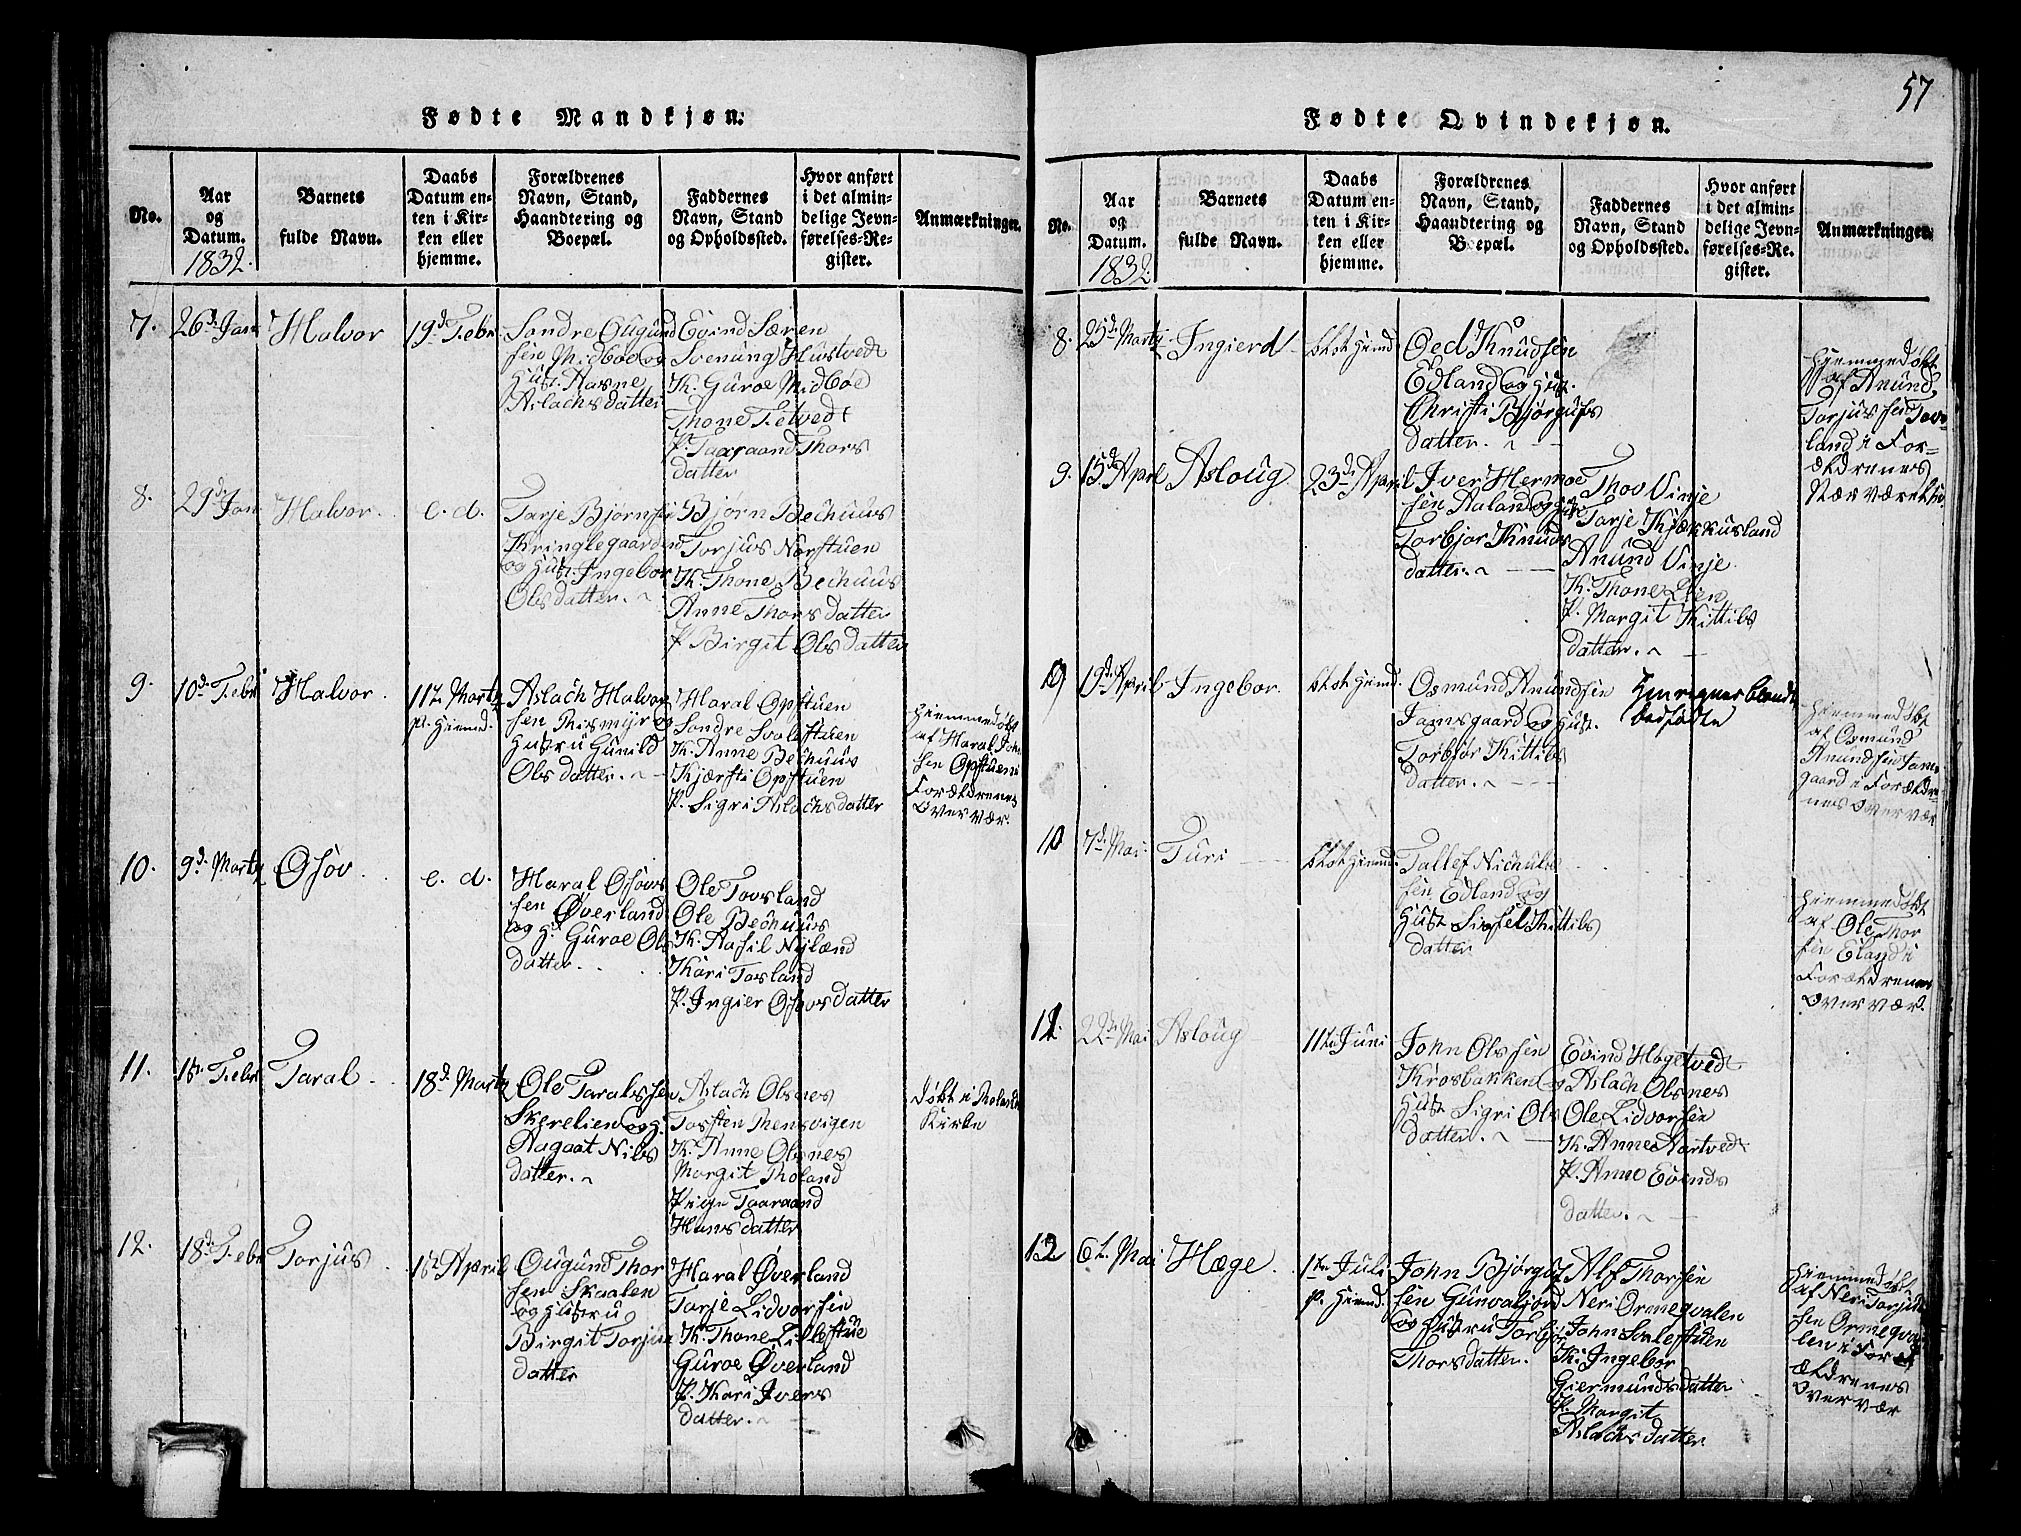 57
Fødte Mandkjøn.
No.
Aar
og
Datum.
1832.
Barnets
fulde Navn.
Daabs
Datum en-
ten i Kir-
ken eller
hjemme.
Forældrenes
Navn, Stand,
Haandtering og
Boepæl.
Faddernes
Navn, Stand
og Opholdssted.
Hvor anført
i det almin-
delige Jevn-
førelses-Re-
gister.
Anmærkninger.
7.
26d Jan
Halvor
19d Febr
Sondre Ougund
sen Midböe og
Hust. Aasne
Aslachsdatter
Evind Særen
Svenung Hustvedt
K. Guroe Midböe
Thone Tietvedt
P. Taaraand Thors
datter
8.
29d Jan
Halvor.
e. d.
Tarje Bjørnsen
Kringlegaarden
og Hust. Ingebor
Olsdatter.
Bjørn Bechuus
Torjus Norstuen
K. Thone Bechuus
Anne Thorsdatter
P. Birgit Olsdatter
9.
10d Febr
Halvor.
11te Marty
p. Hiemed.
Aslach Halvor
sen Rismyr og
Hustru Gunild
Olsdatter.
Haral Opstuen
Sondre Svalestuen
K. Anne Bechuus
Kjærsti Opstuen
P. Sigri Aslachsdatter
Hiemmedøbt
af Haral John
sen Opstuen i
Forældrenes
Overvær.
10.
9d Marty
Osov
e. d.
Haral Osovs
sen Øverland
og H. Guroe Ols
datter.
Ole Tovsland
Ole Bechuus
K. Aasil Nylænd
Kari Tovsland
P. Ingier Osovsdatter
11.
1ste Febr
Taral
18d Marty
Ole Taralssen
Skerelien og H.
Aagaat Nils
datter.
Aslach Olsnes
Torsten Rensvigen
K. Anne Olsnes
Margit Roland
Pige Taaraand
Hansdatter
døbt i Rolands
Kirke
12.
18d Febr
Torjus
1ste April
Ougund Thor
sen Skaalen
og Hustru
Birgit Torjus
datter
Haral Øverland
Tarje Lidvorsen
K. Thone Lillestue
Guroe Øverland
P. Kari Ivers
datter.
Fødte Qvindekjøn.
No.
Aar
og
Datum.
1832.
Barnets
fulde Navn.
Daabs
Datum en-
ten i Kir-
ken eller
hjemme.
Forældrenes
Navn, Stand,
Haandtering og
Boepæl.
Faddernes
Navn, Stand
og Opholdssted.
Hvor anført
i det almin-
delige Jevn-
førelses-Re-
gister.
Anmærkninger.
8.
25d Marty
Ingierd
Oed Knudsen
Edland og Hust.
Christi Bjørgufs
datter.
Hiemmedøbt
af Anund
Torjussen Tovs-
land i For-
ældrenes
Nærværelse
9.
15d April
Asloug
23d April
Iver Hermoe
sen Aaland og Hust.
Torbjør Knuds
datter.
Thov Vinje
Tarje Kjækkusland
Anund Vinje
K. Thone Lien
P. Margit Kittils
datter.
9
19d April
Ingebor.
Osmund Anundsen
Jamsgaard og Hust.
Torbjør Kittils
datter.
Henregnes blandt
dødfødte
Hiemmedøbt
af Osmund
Anundsen Jams
gaard i Forældre-
nes Overvær
10
7d Mai
Turi
Tallef Nichuls
sen Edland og
Hust. Sissel Kittils
datter
Hiemmedøbt
af Ole Thor
sen Eland i
Forældrenes
Overvær.
11.
22d Mai
Asloug
11te Juni
John Olssen
Krosbakken og
Hust. Sigri Ols
datter.
Evind Hagetvedt
Aslach Olsnes
Ole Lidvorsen
K. Anne Aartvedt
P. Anne Evends
datter.
12
6t. Mai
Hæge.
1te Juli
p. Hiemd.
John Bjørguf
sen Gunvaljord
og Hustru Torbjør
Thorsdatter.
Alf Thorsen
Neri Ormeqvalen
John Svalestuen
K. Ingebor
Giermundsdatter
P. Margit
Aslachsdatter.
Hiemmedøbt
af Neri Torjus
sen Ormeqva
len i For
ældrenes
Overvær